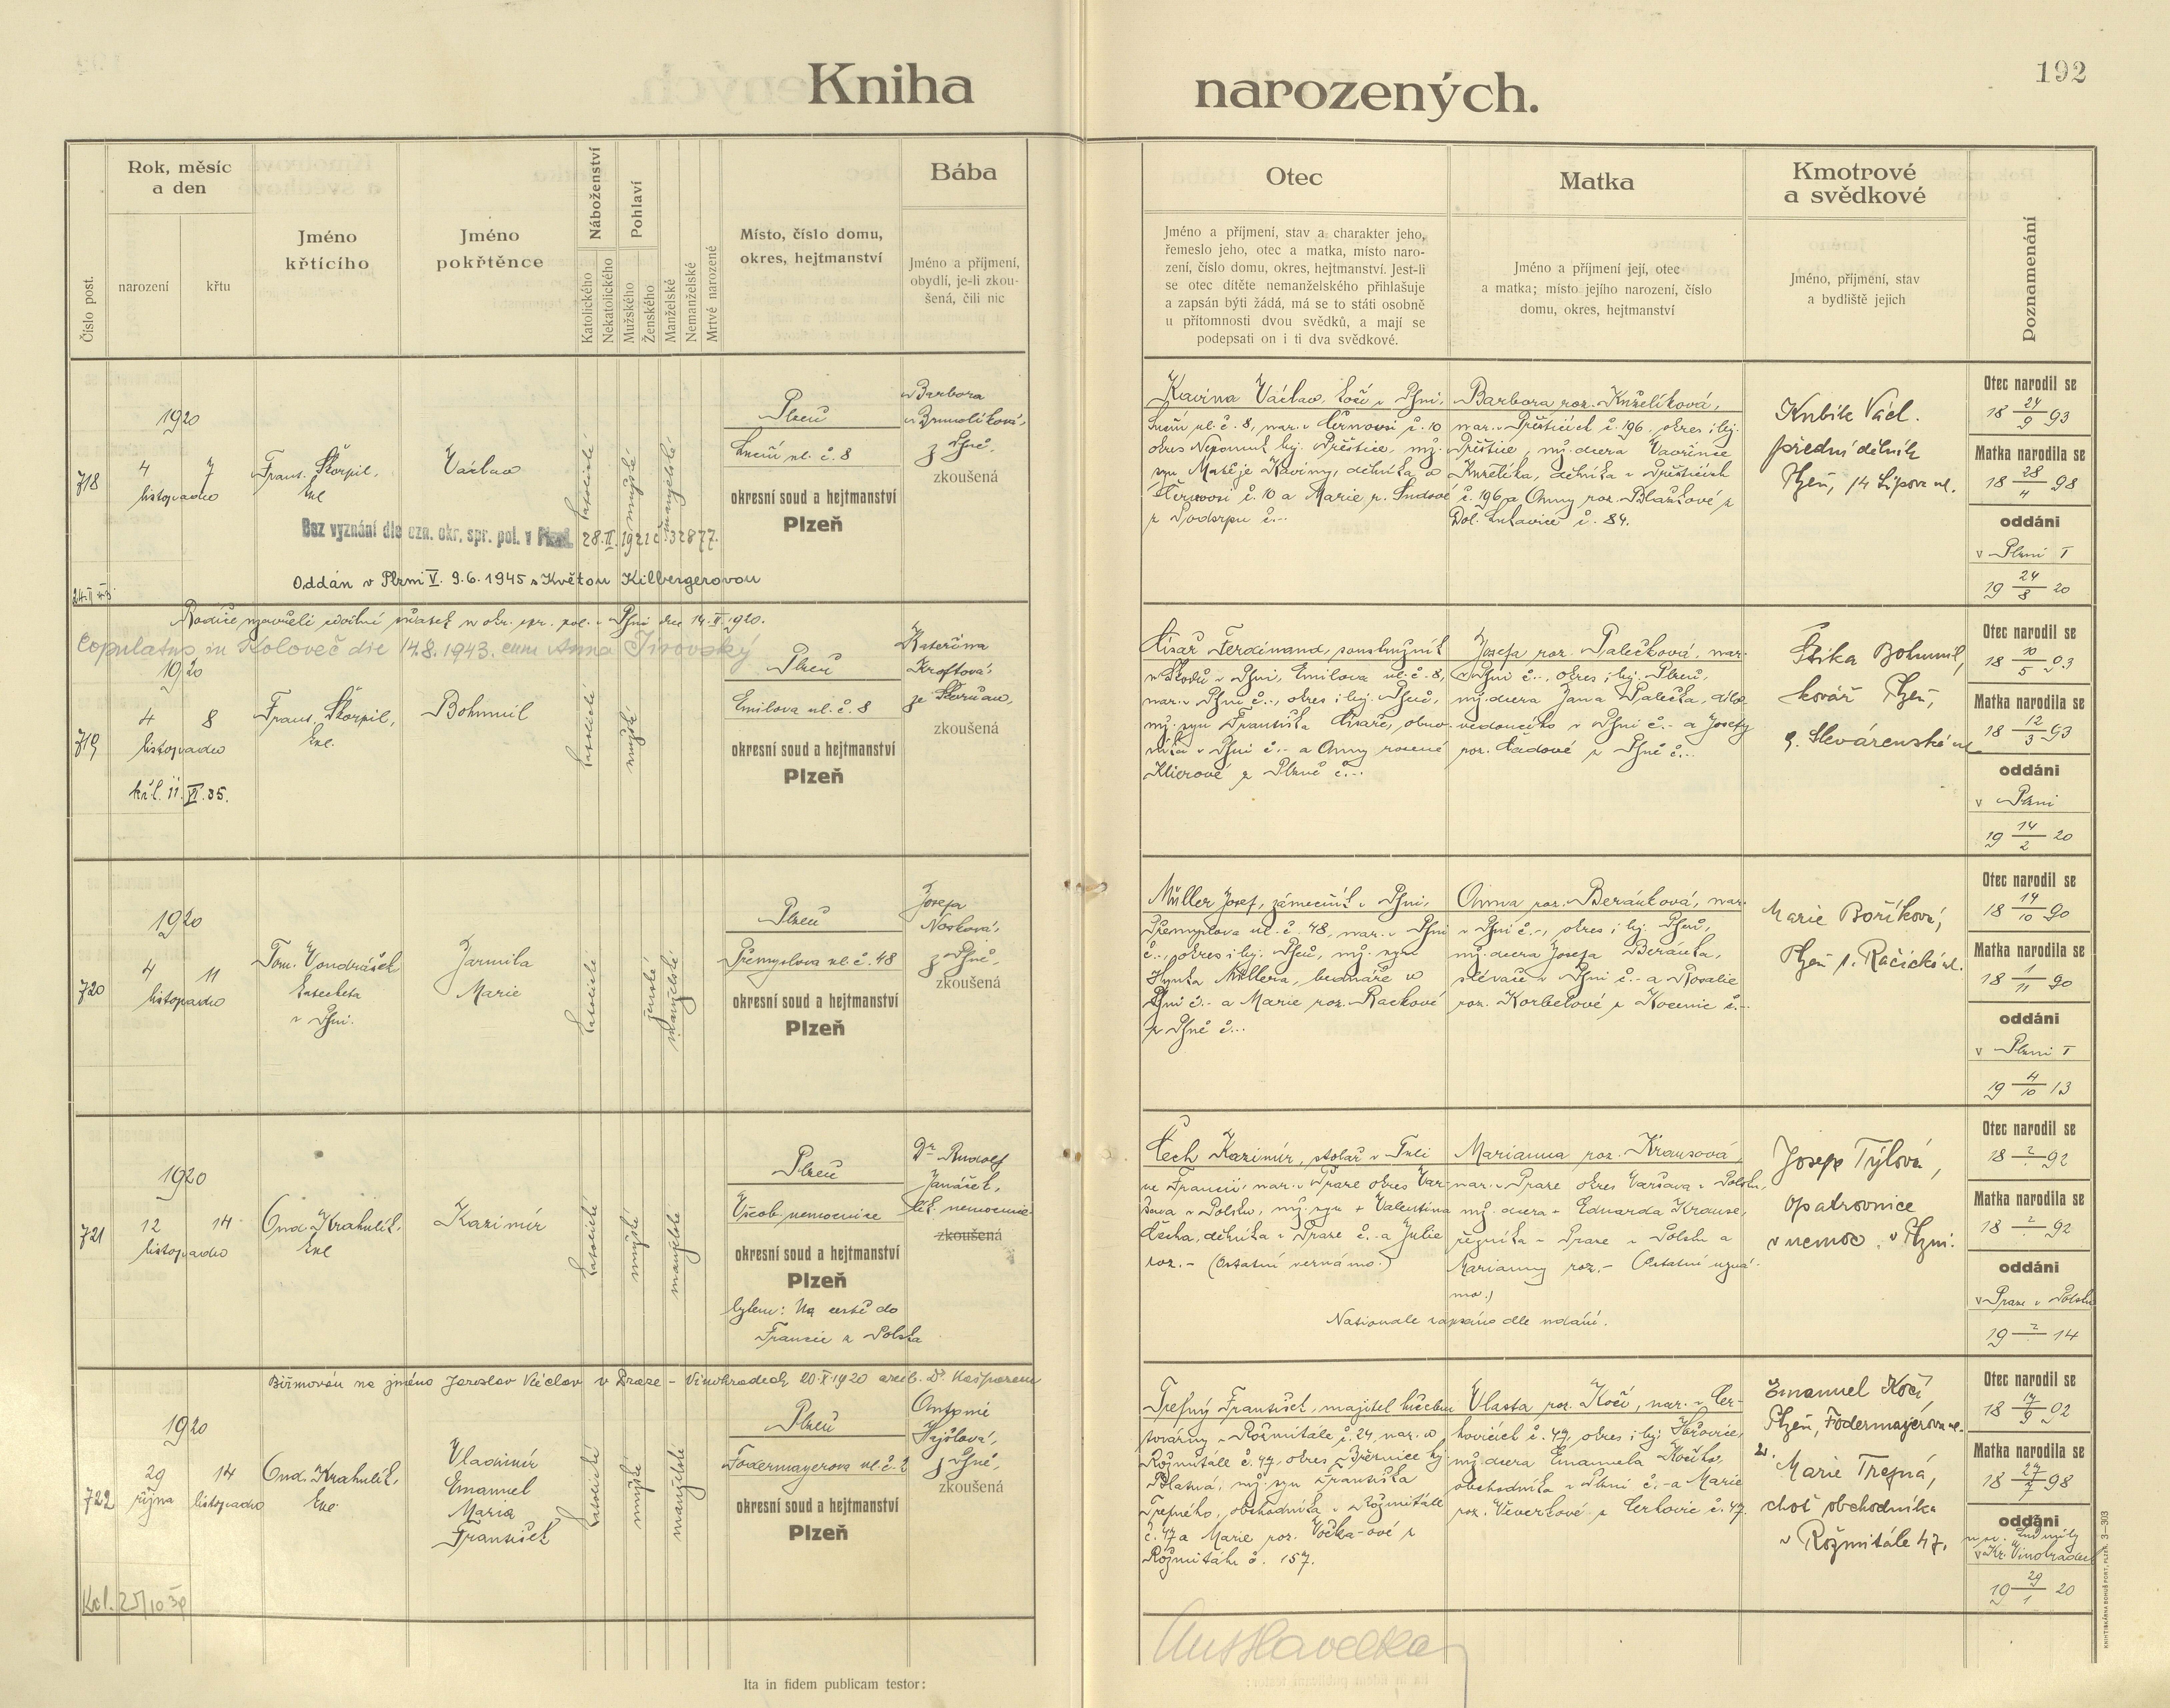 Kniha
narozených.
192
Číslo post.
Rok, měsíc
a den
narození
křtu
Jméno
křtícího
Jméno
pokřtěnce
Náboženství
Katolického
Nekatolického
Pohlaví
Mužského
Ženského
Manželské
Nemanželské
Mrtvě narozené
Místo, číslo domu,
okres, hejtmanství
Bába
Jméno a příjmení,
obydlí, je-li zkou-
šená, čili nic
Otec
Jméno a příjmení, stav a charakter jeho,
řemeslo jeho, otec a matka, místo naro-
zení, číslo domu, okres, hejtmanství. Jest-li
se otec dítěte nemanželského přihlašuje
a zapsán býti žádá, má se to státi osobně
u přítomnosti dvou svědků, a mají se
podepsati on i ti dva svědkové.
Matka
Jméno a příjmení její, otec
a matka; místo jejího narození, číslo
domu, okres, hejtmanství
Kmotrové
a svědkové
Jméno, příjmení, stav
a bydliště jejich
Poznamenání
718
1920
4 7
listopadu
Frant. Škorpil,
Václav
katolické
mužské
manželské
Plzeň
ul. č. 8
okresní soud a hejtmanství
Plzeň
Barbora
zkoušená
Bez vyznání dle ozn. okr. spr. pol. v Plzni 28.II.1921 č. 32877.
Oddán v Plzni V. 9.6.1945 s Květou Kilbergerovou
Kavina Václav, kočí v Plzni,
ul. č. 8, nar. v č. 10
okres Nepomuk hej. Přeštice, mž.
syn Matěje Kaviny, dělníka v
č. 10 a Marie r.
z Podsrpu č...
Barbora roz. Knížetíková,
nar. v Přešticích č. 196, okres i hej.
Přeštice, mž. dcera Vavřince
dělníka v Přešticích
č. 196 a Anny roz.
Dol. Lukavice č. 84.
Kubík Václ.
přední dělník
Plzeň, 14 Lipova ul.
Otec narodil se
18 24/9 93
Matka narodila se
18 28/4 98
oddáni
v Plzni I
19 24/8 20
Rodiče uzavřeli civilní sňatek u okr. spr. pol. v Plzni dne 14.II.1920.
Copulatus in Koloveč die 14.8.1943. cum Anna Jirovský
719
1920
4 8
listopadu
Frant. Škorpil,
Bohumil
katolické
mužské
Plzeň
Emilova ul. č. 8
okresní soud a hejtmanství
Plzeň
Kateřina
Kroftová,
ze Skvrňan,
zkoušená
Císař Ferdinand, soustružník
u Škody v Plzni, Emilova ul. č. 8,
nar. v Plzni č.., okres i hej. Plzeň,
mž. syn Františka Císaře,
v Plzni č.- a Anny rozené
Klierové z Plzně č...
Josefa roz. Palečková, nar.
v Plzni č.., okres i hej. Plzeň,
mž. dcera Jana Palečka, dílo-
vedoucího v Plzni č.- a Josefy
roz. z Plzně č...
Bohumil,
kovář Plzeň,
9. Slevárenská ul.
Otec narodil se
18 10/5 93
Matka narodila se
18 12/3 93
oddáni
v Plzni
19 14/2 20
720
1920
4 11
listopadu
Tom. Vondrášek
katecheta
v Plzni.
Jarmila
Marie
katolické
ženské
manželské
Plzeň
Přemyslova ul. č. 48
okresní soud a hejtmanství
Plzeň
Josefa
Nosková,
z Plzně,
zkoušená
Müller Josef, zámečník v Plzni,
Přemyslova ul. č. 48, nar. v Plzni
č.., okres i hej. Plzeň, mž. syn
Hynka Müllera, bednáře v
Plzni č.- a Marie roz. Rackové
z Plzně č...
Anna roz. Beránková, nar.
v Plzni č.., okres i hej. Plzeň,
mž. dcera Josefa Beránka,
slévače v Plzni č.- a Rosalie
roz. Korbelové z Kocenic č...
Marie Boříková,
Plzeň 1. Račická ul.
Otec narodil se
18 14/10 90
Matka narodila se
18 1/11 90
oddáni
v Plzni I
19 4/10 13
721
1920
12 14
listopadu
Ond. Krahulík,
Kazimír
katolické
mužské
manželské
Plzeň
Všeob. nemocnice
okresní soud a hejtmanství
Plzeň
bytem: Na cestě do
Francie z Polska
Dr Rudolf
Janášek,
lék. nemocnice
zkoušená
Čech Kazimír, stolař v
ve Francii, nar. v Praze okres Var-
šava v Polsku, mž. syn + Valentina
Čecha, dělníka v Praze č.- a Julie
roz.- (Ostatní neznámo.)
Marianna roz. Krausová,
nar. v Praze okres Varšava v Polsku,
mž. dcera + Eduarda Krause,
řezníka v Praze v Polsku a
Marianny roz.- (Ostatní nezná-
mo.)
Nationale zapsáno dle udání.
Josefa Týlová,
opatrovnice
v nemoc. v Plzni.
Otec narodil se
18 ? 92
Matka narodila se
18 ? 92
oddáni
v Praze v Polsku
19 ? 14
Biřmován na jméno Jaroslav Václav v Praze - Vinohradech 20.X.1920 arcib. Dr. Kašparem
722
1920
29 14
října listopadu
Ond. Krahulík,
Vladimír
Emanuel
Maria
František
katolické
mužské
manželské
Plzeň
Fodermayerova ul. č. 2
okresní soud a hejtmanství
Plzeň
Antonie
z Plzně,
zkoušená
Trefný František, majitel
továrny v Rožmitále č. 24, nar. v
Rožmitále č. 47, okres Březnice hej.
Blatná, mž. syn Františka
Trefného, obchodníka v Rožmitále
č. 47 a Marie roz. z
Rožmitálu č. 157.
Vlasta roz. Kočí, nar. v Cer-
hovicích č. 47, okres i hej. Hořovice,
mž. dcera Emanuela Kočího,
obchodníka v Plzni č.- a Marie
roz. Viverkové z Cerhovic č. 47.
Emanuel Kočí
Plzeň, Fodermayerova ul.
Marie Trefná,
choť obchodníka
v Rožmitále 47.
Otec narodil se
18 17/9 92
Matka narodila se
18 27/7 98
oddáni
u sv. Ludmily
v Kr. Vinohradech
19 29/1 20
Ita in fidem publicam testor: